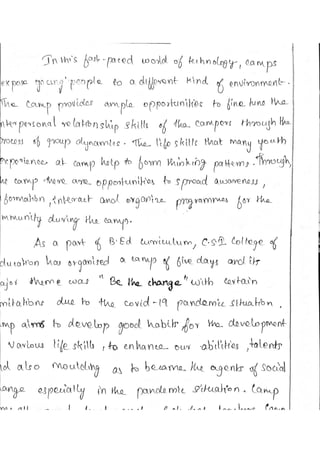 In this fast-paced world of technology, camps
expose young people to a different kind of environment.
The camp provides ample opportunities to fine tune the
interpersonal relationship skills of the campers through the
process of group dynamics. The life skills that many youth
experience at camp help to form thinking patterns. Through
the camp there are opportunities to spread awareness,
formation, interact and organize programmes for the
mmunity during the camp.
As a part of B.Ed curriculum, C.S.I College of
ducation has organised a camp of five days and its
ajor theme was "Be the change" with certain
mitations due to the covid-19 pandemic situation.
mp aims to develop good habits for the development
Various life skills, to enhance our abilities, talents
nd also moulding as to became the agents of social
ange especially in the pandemic situation. Camp